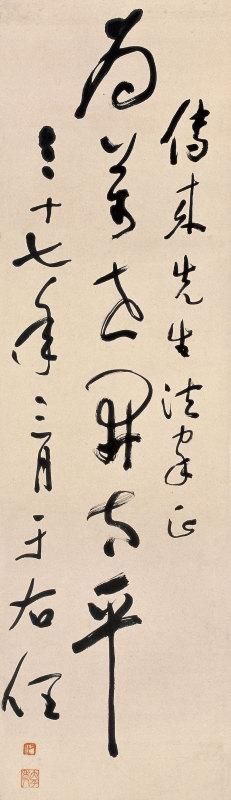 傳來先生法家正
為萬世開太平
三十七年三月于右任